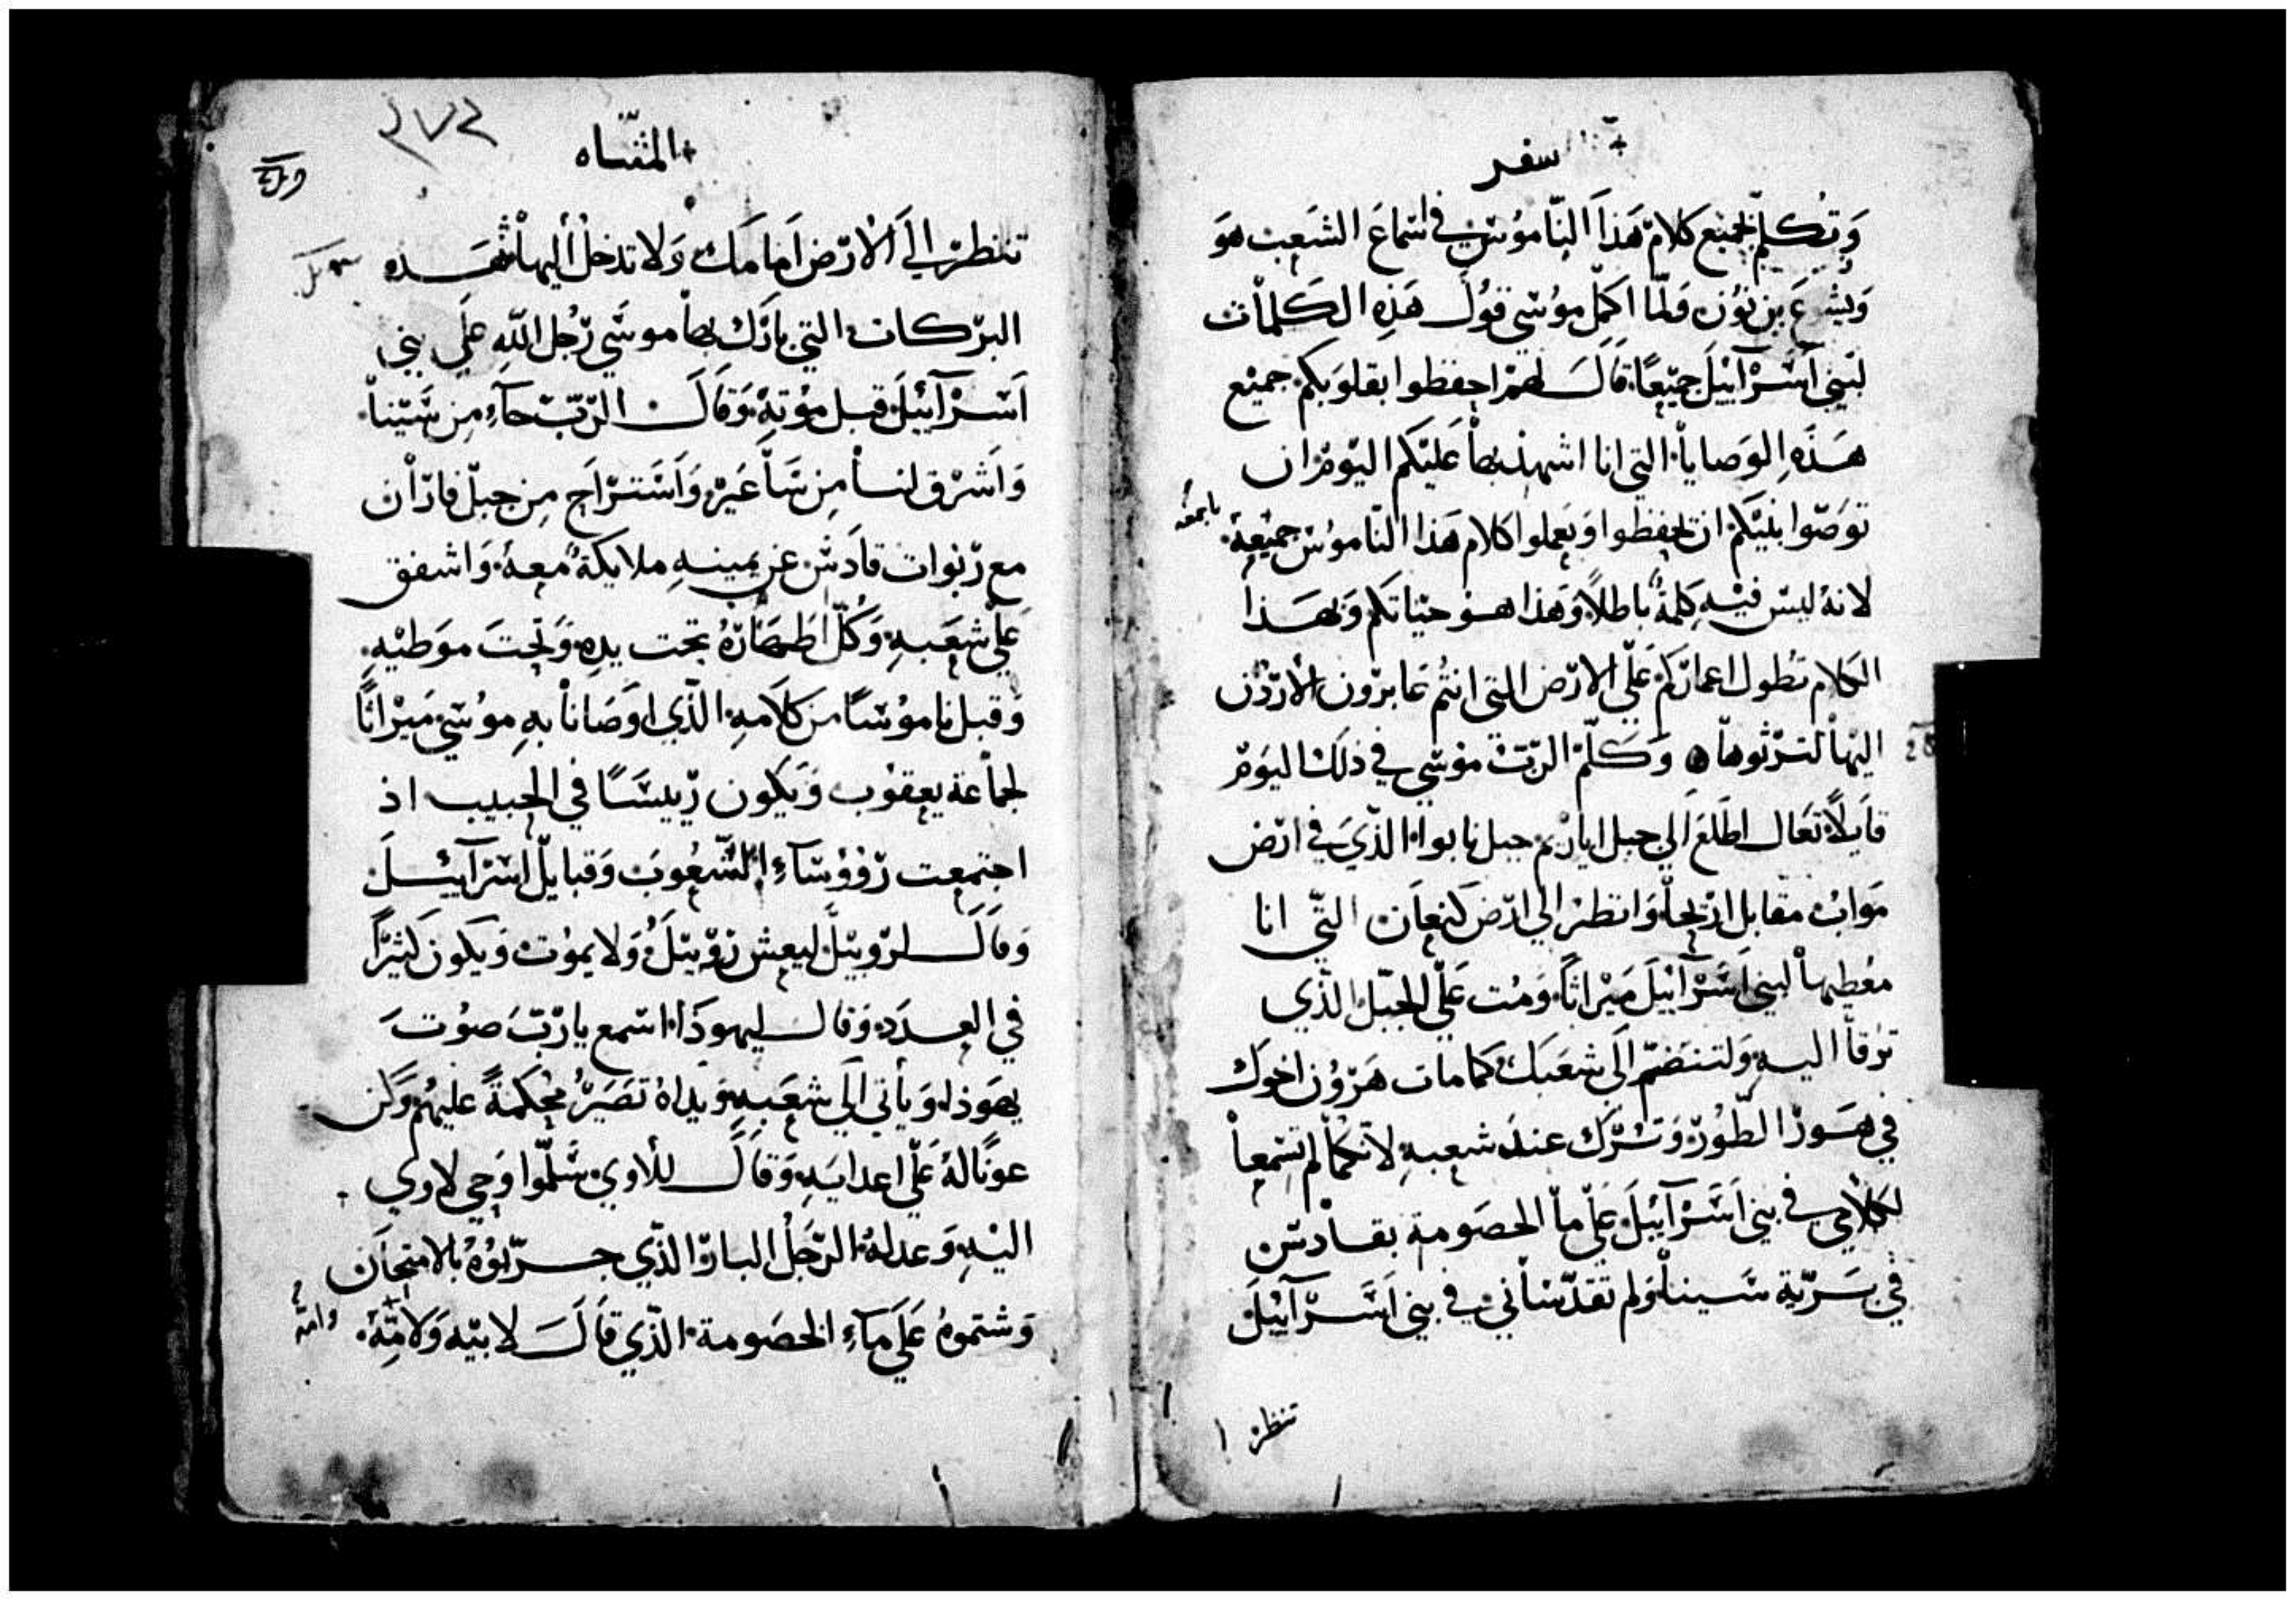 سفر
وتكلم بجميع كلام هذا الناموس في اسماع الشعب هو
ويشوع بن نون ولما اكمل موسي قول هذه الكلمات
لبني اسرآييل جميعًا قال لهم احفظوا بقلوبكم جميع
هذه الوصايا التي انا اشهد بها عليكم اليوم ان
توصوا بنيكم ان يحفظوا ويعملوا كلام هذا الناموس جميعه
لانه ليس فيه كلمة باطلاً وهذا هو حياتكم وبهذا
الكلام تطول اعماركم علي الارض التي انتم عابرون الأردن
اليها لترثوها ۞ وكلم الرب موسي في ذلك اليوم
قايلاً تعال اطلع الي جبل اباريم جبل نابوا الذي في ارض
مواب مقابل اريحا وانظر الي ارض كنعان التي انا
معطيها لبني اسرآييل ميراثًا ومت علي الجبل الذي
ترقا اليه ولتنضم الي شعبك كما مات هرون اخوك
في هور الطور وترك عند شعبه لانكما لم تسمعا
لكلامي في بني اسرآييل علي ما الخصومة بقادس
في برية سينا ولم تقدساني في بني اسرآييل
تنظر ا
المثناه
٢٧٢
تنظر الي الارض امامك ولا تدخل أليها فهذه
البركات التي بارك بها موسي رجل الله علي بني
اسرآييل قبل موته وقال الرب جآء من سينا
واشرق لنا من ساعير واستراح من جبل فاران
مع ربوات قادس عن يمينه ملايكة معه واشفق
علي شعبه وكل اطهاره تحت يده وتحت موطيه
وقبل ناموسًا من كلامه الذي اوصانا به موسي ميراثًا
لجماعة يعقوب ويكون رييسًا في الحبيب اذ
اجتمعت رووسآء الشعوب وقبايل اسرآييل
وقال لروبيل ليعش روبيل ولا يموت ويكون كثيرًا
في العدد وقال ليهوذا اسمع يارب صوت
يهوذا ويأتي الي شعبه ويداه تصير محكمة عليهم وكن
عونًا له علي اعدايه وقال للاوي سلموا وحي لاوي
اليه وعدله الرجل البار الذي جربوه بالامتحان
وشتموه علي مآء الخصومة الذي قال لابيه ولامه